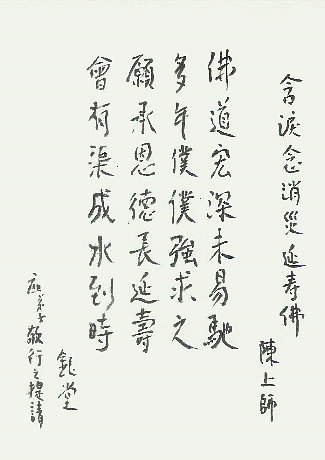 含淚念消災延壽佛
陳上師
佛道宏深未易馳
多年僕僕強求之
願承恩德長延壽
會有渠成水到時
鈍堂
應弟子敬行之提請